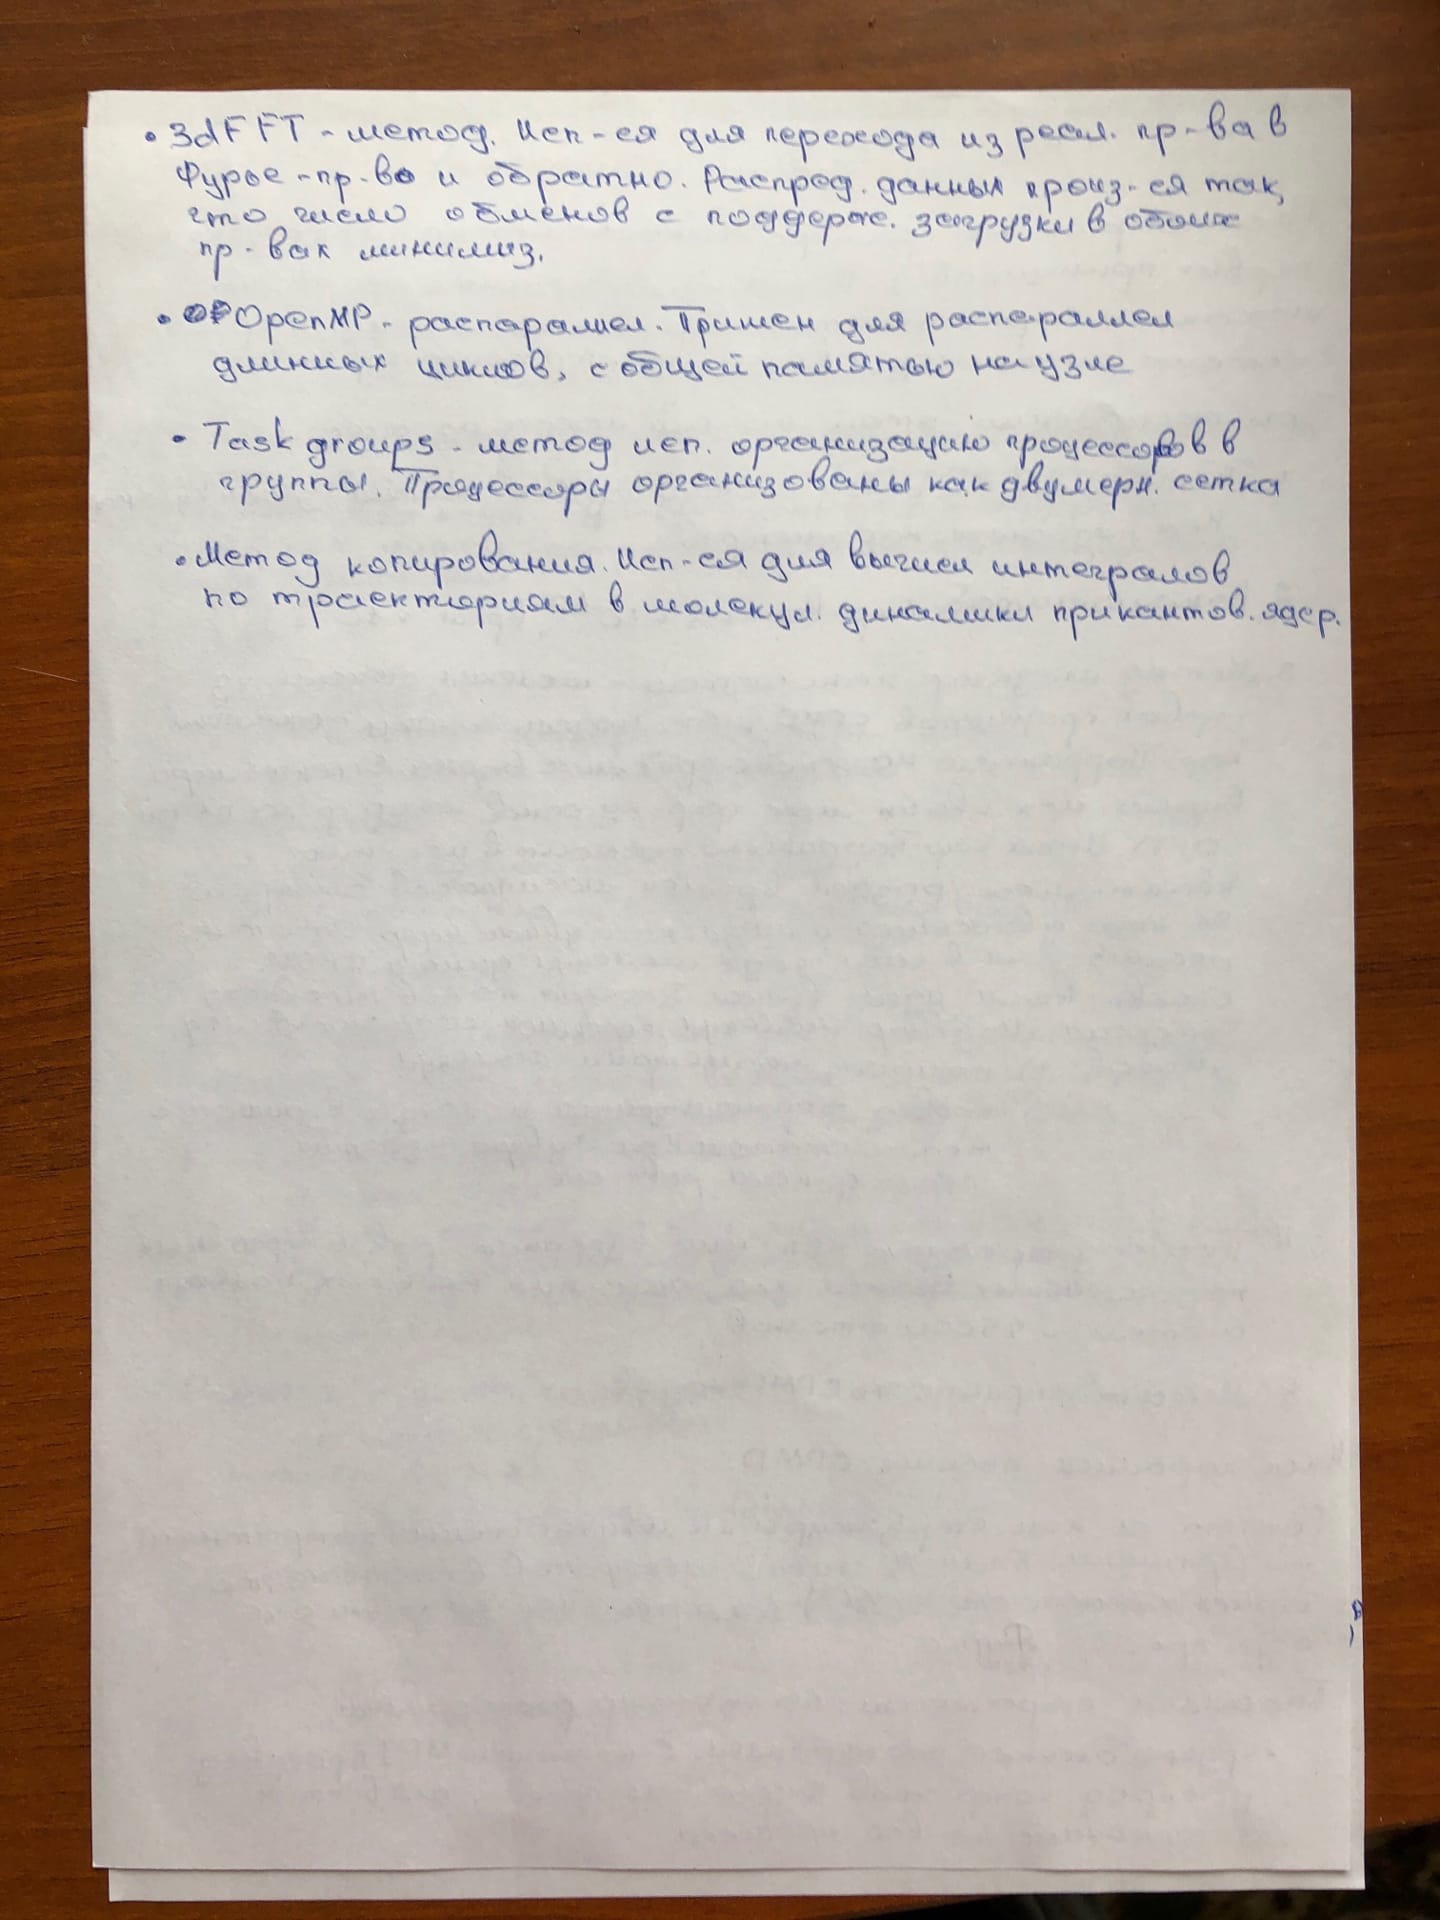 • 3dFFT - метод. Исп-ся для перехода из реал. пр-ва в
Фурье-пр-во и обратно. Распред. данных произ-ся так,
что число обменов с поддерж. загрузки в обоих
пр-вах минимиз.
• OpenMP - распараллел. Примен для распараллел
длинных циклов, с общей памятью на узле
• Task groups - метод исп. организацию процессоров в
группы. Процессоры организованы как двумерн. сетка
• Метод копирования. Исп-ся для вычисл интегралов
по траекториям в молекул. динамики при кантов. ядер.